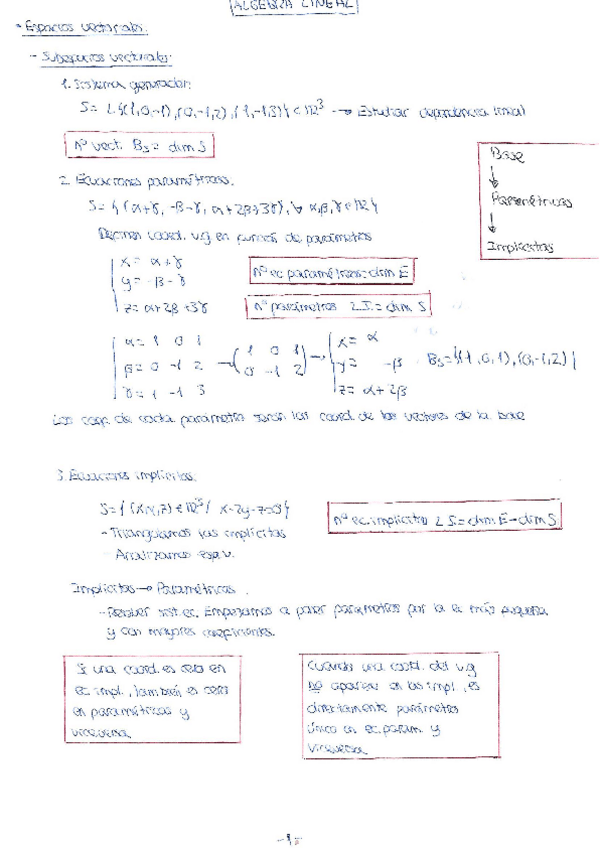 ALGEBRA LINEAL
- Espacios vectoriales:
- Subespacios vectoriales:
1. Sistema generador:
S = L{(1,0,-1),(0,-1,2),(1,-1,3)} ⊂ R³ → Estudiar dependencia lineal
nº vect. Bs = dim S
Base
↓
Paramétricas
↓
Implícitas
2. Ecuaciones paramétricas.
S = {(α+γ, -β-γ, α+2β+3γ), ∀ α,β,γ ∈ R}
coord. v.g en función de parámetros
x = α+γ
y = -β-γ
z = α+2β+3γ
nº ec paramétricas = dim E
nº parámetros L.I. = dim S
α = 1 0 1
β = 0 -1 2
γ = 1 -1 3
→ (1 0 1
0 -1 2) →
x = α
y = -β
z = α+2β
Bs = {(1,0,1),(0,-1,2)}
Los coef. de cada parámetro serán las coord de los vectores de la base
3. Ecuaciones implícitas:
S = {(x,y,z) ∈ R³ / x-2y-z=0}
nº ec. implícitas L.I. = dim E - dim S
- Triangulamos las implícitas
- Analizamos
Implícitas → Paramétricas.
- Resolver sist. ec. Empezamos a poner parámetros por la ec más pequeña
y con mayores coeficientes.
Si una coord. es cero en
ec impl., también es cero
en paramétricas y
viceversa
Cuando una coord. del v.g
no aparece en las impl., es
directamente parámetro
único en ec. param. y
viceversa
-1-